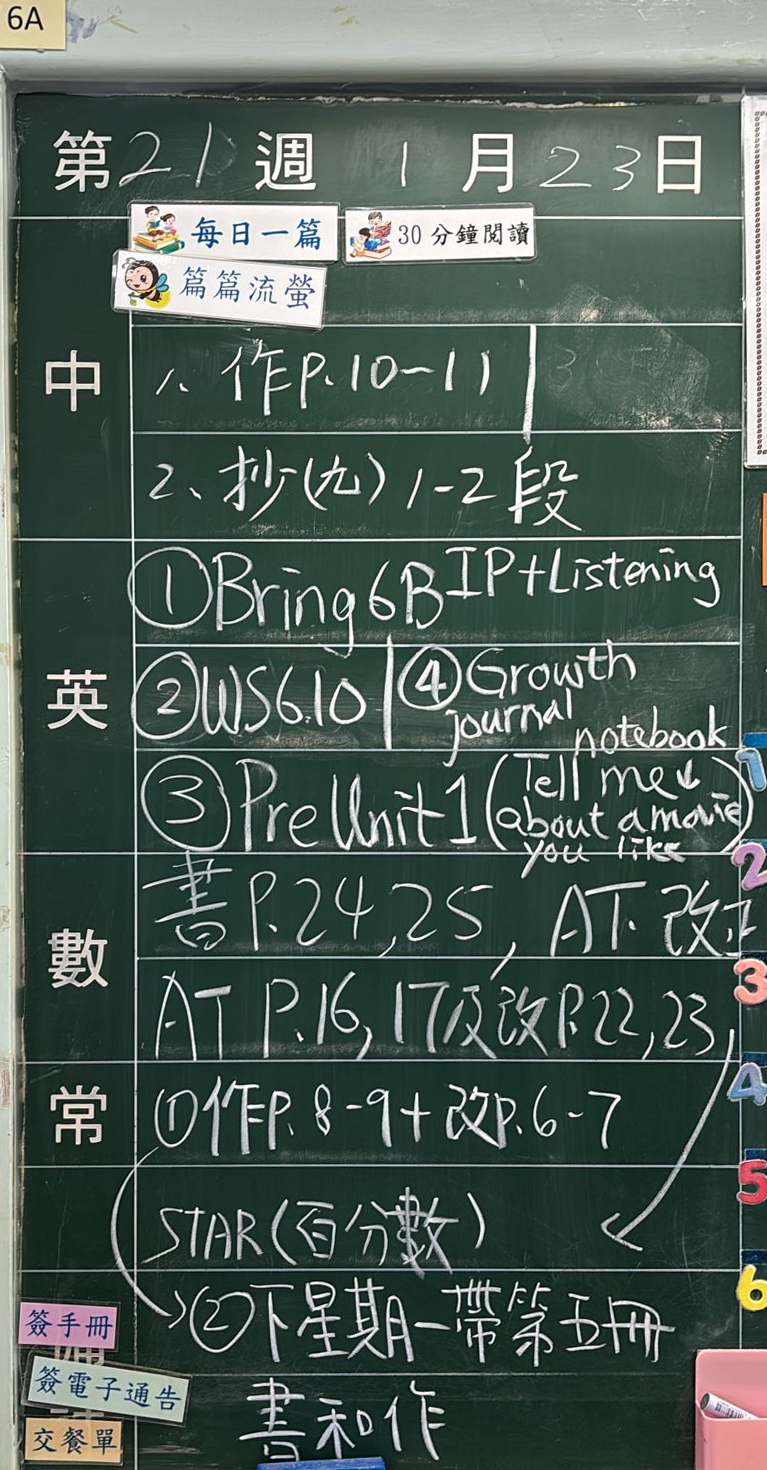 6A
第21週 1月23日
每日一篇 30分鐘閱讀
篇篇流螢
中
1. 作P.10-11
2、抄(九) 1-2段
英
①Bring 6B IP+Listening
②WS6.10 ④Growth journal notebook
③Pre Unit 1 (Tell me about a movie you like)
數
書P.24,25, AT 改正
AT P.16, 17及改P.22,23,
常
①作P.8-9+改P.6-7
STAR(百分數)
②下星期一帶第五冊
書和作
簽手冊
簽電子通告
交餐單
1
2
3
4
5
6